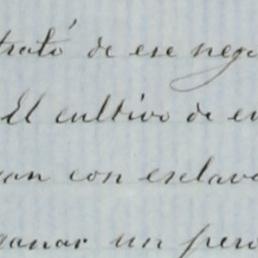 trató de ese nego
El cultivo de e
an con esclavo
ganar un peri